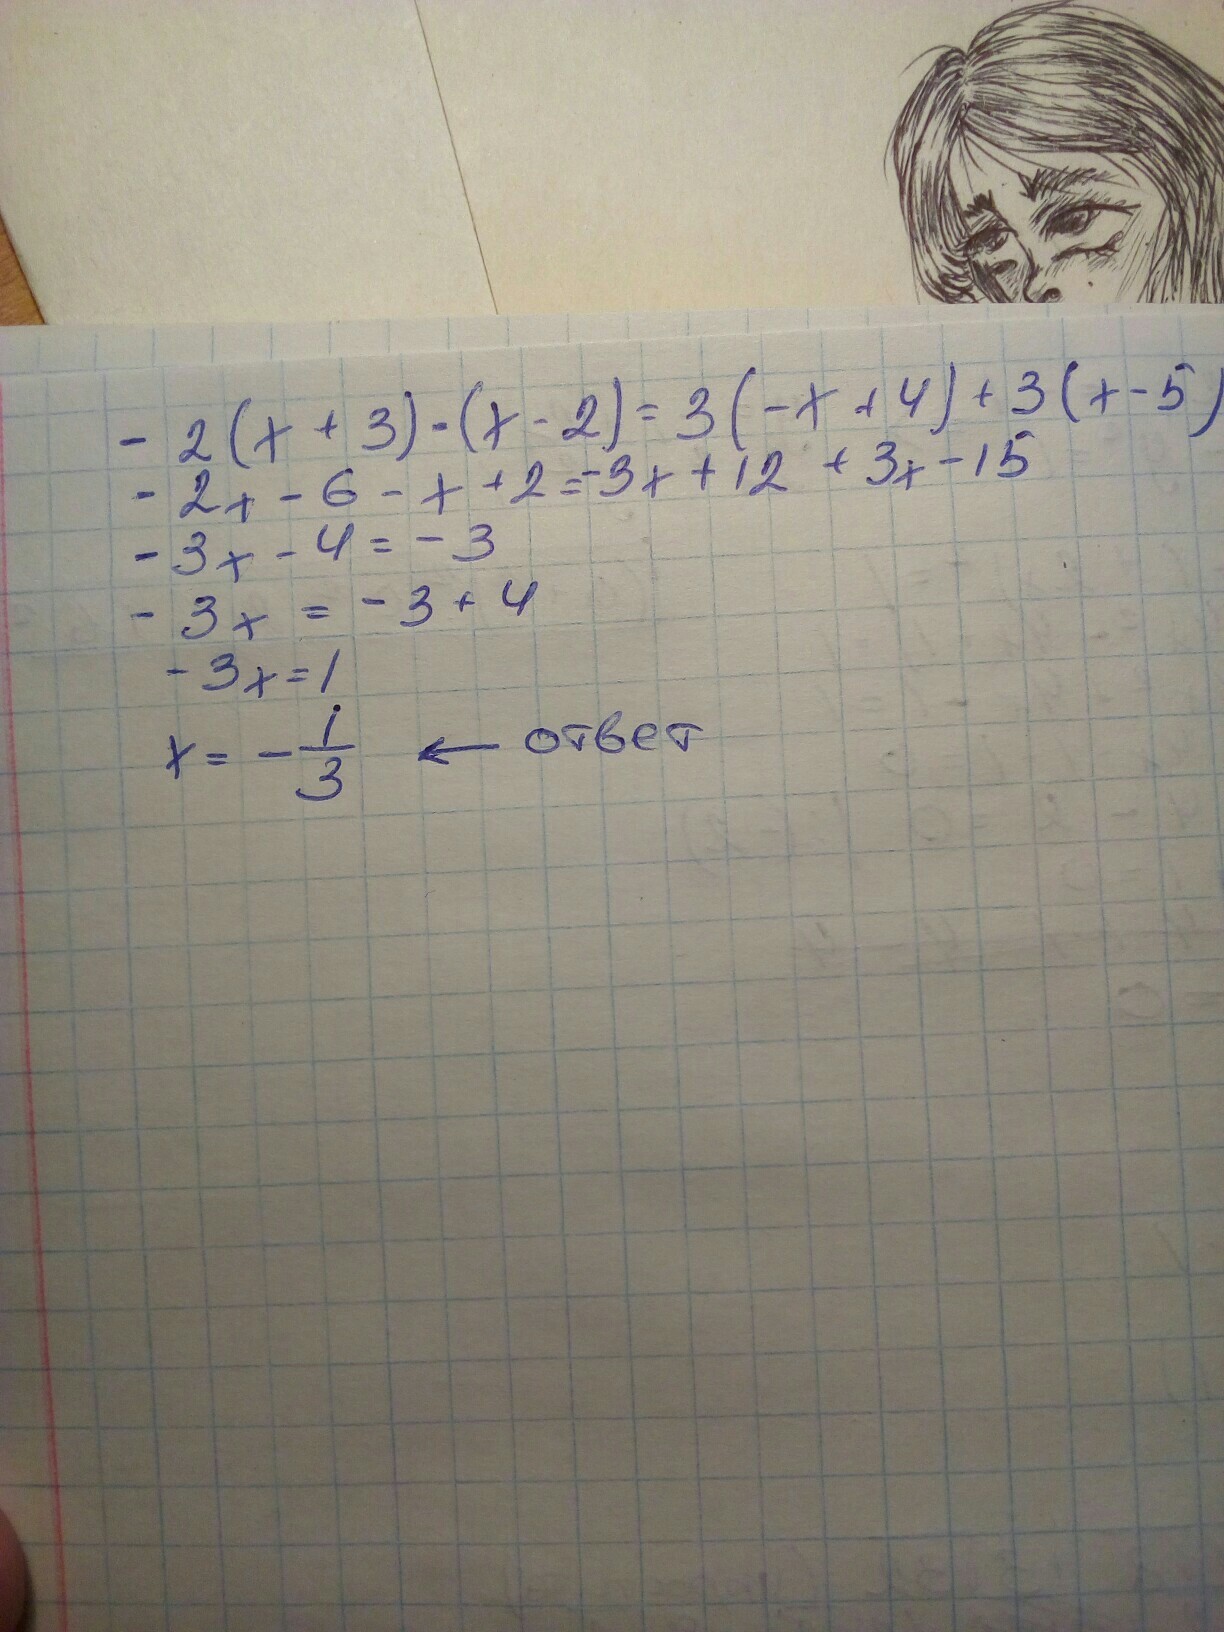 - 2(x + 3) - (x - 2) = 3(-x + 4) + 3(x - 5)
- 2x - 6 - x + 2 = -3x + 12 + 3x - 15
- 3x - 4 = - 3
- 3x = - 3 + 4
- 3x = 1
x = - 1/3 ← ответ